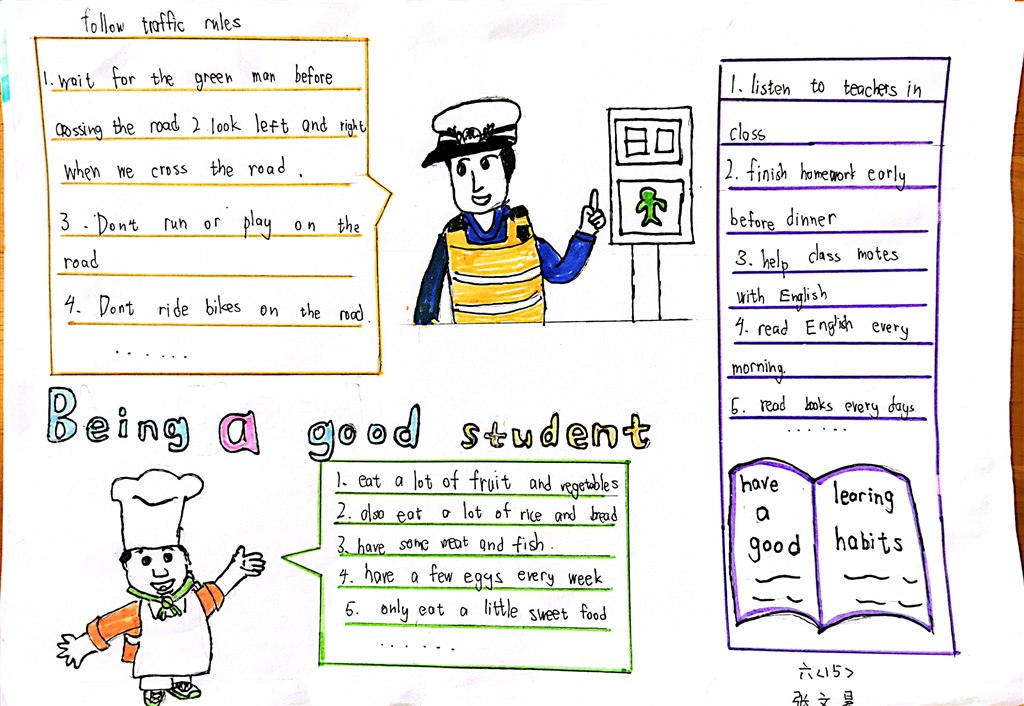 follow traffic rules
1. wait for the green man before
crossing the road 2. look left and right
when we cross the road.
3. Don't run or play on the
road
4. Dont ride bikes on the road.
......
Being a good student
1. eat a lot of fruit and vegetables
2. also eat a lot of rice and bread
3. have some meat and fish.
4. have a few eggs every week
5. only eat a little sweet food
......
1. listen to teachers in
class
2. finish homework early
before dinner
3. help class motes
with English
4. read English every
morning.
5. read books every days
......
have
a
good
learing
habits
六<15>
张文昊